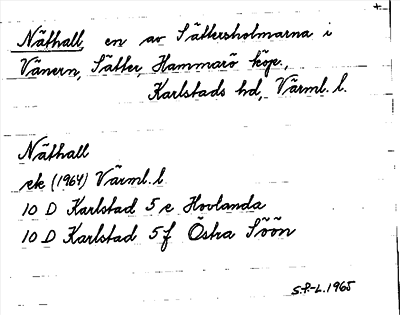 Näthall, en av Sättersholmarna i
Vänern, Sätter, Hammarö köp.,
Karlstads hd, Värml. l.
Näthall
ek (1964) Värml. l
10 D Karlstad 5 e Hovlanda
10 D Karlstad 5 f Östra Söön
S.P.-L. 1965